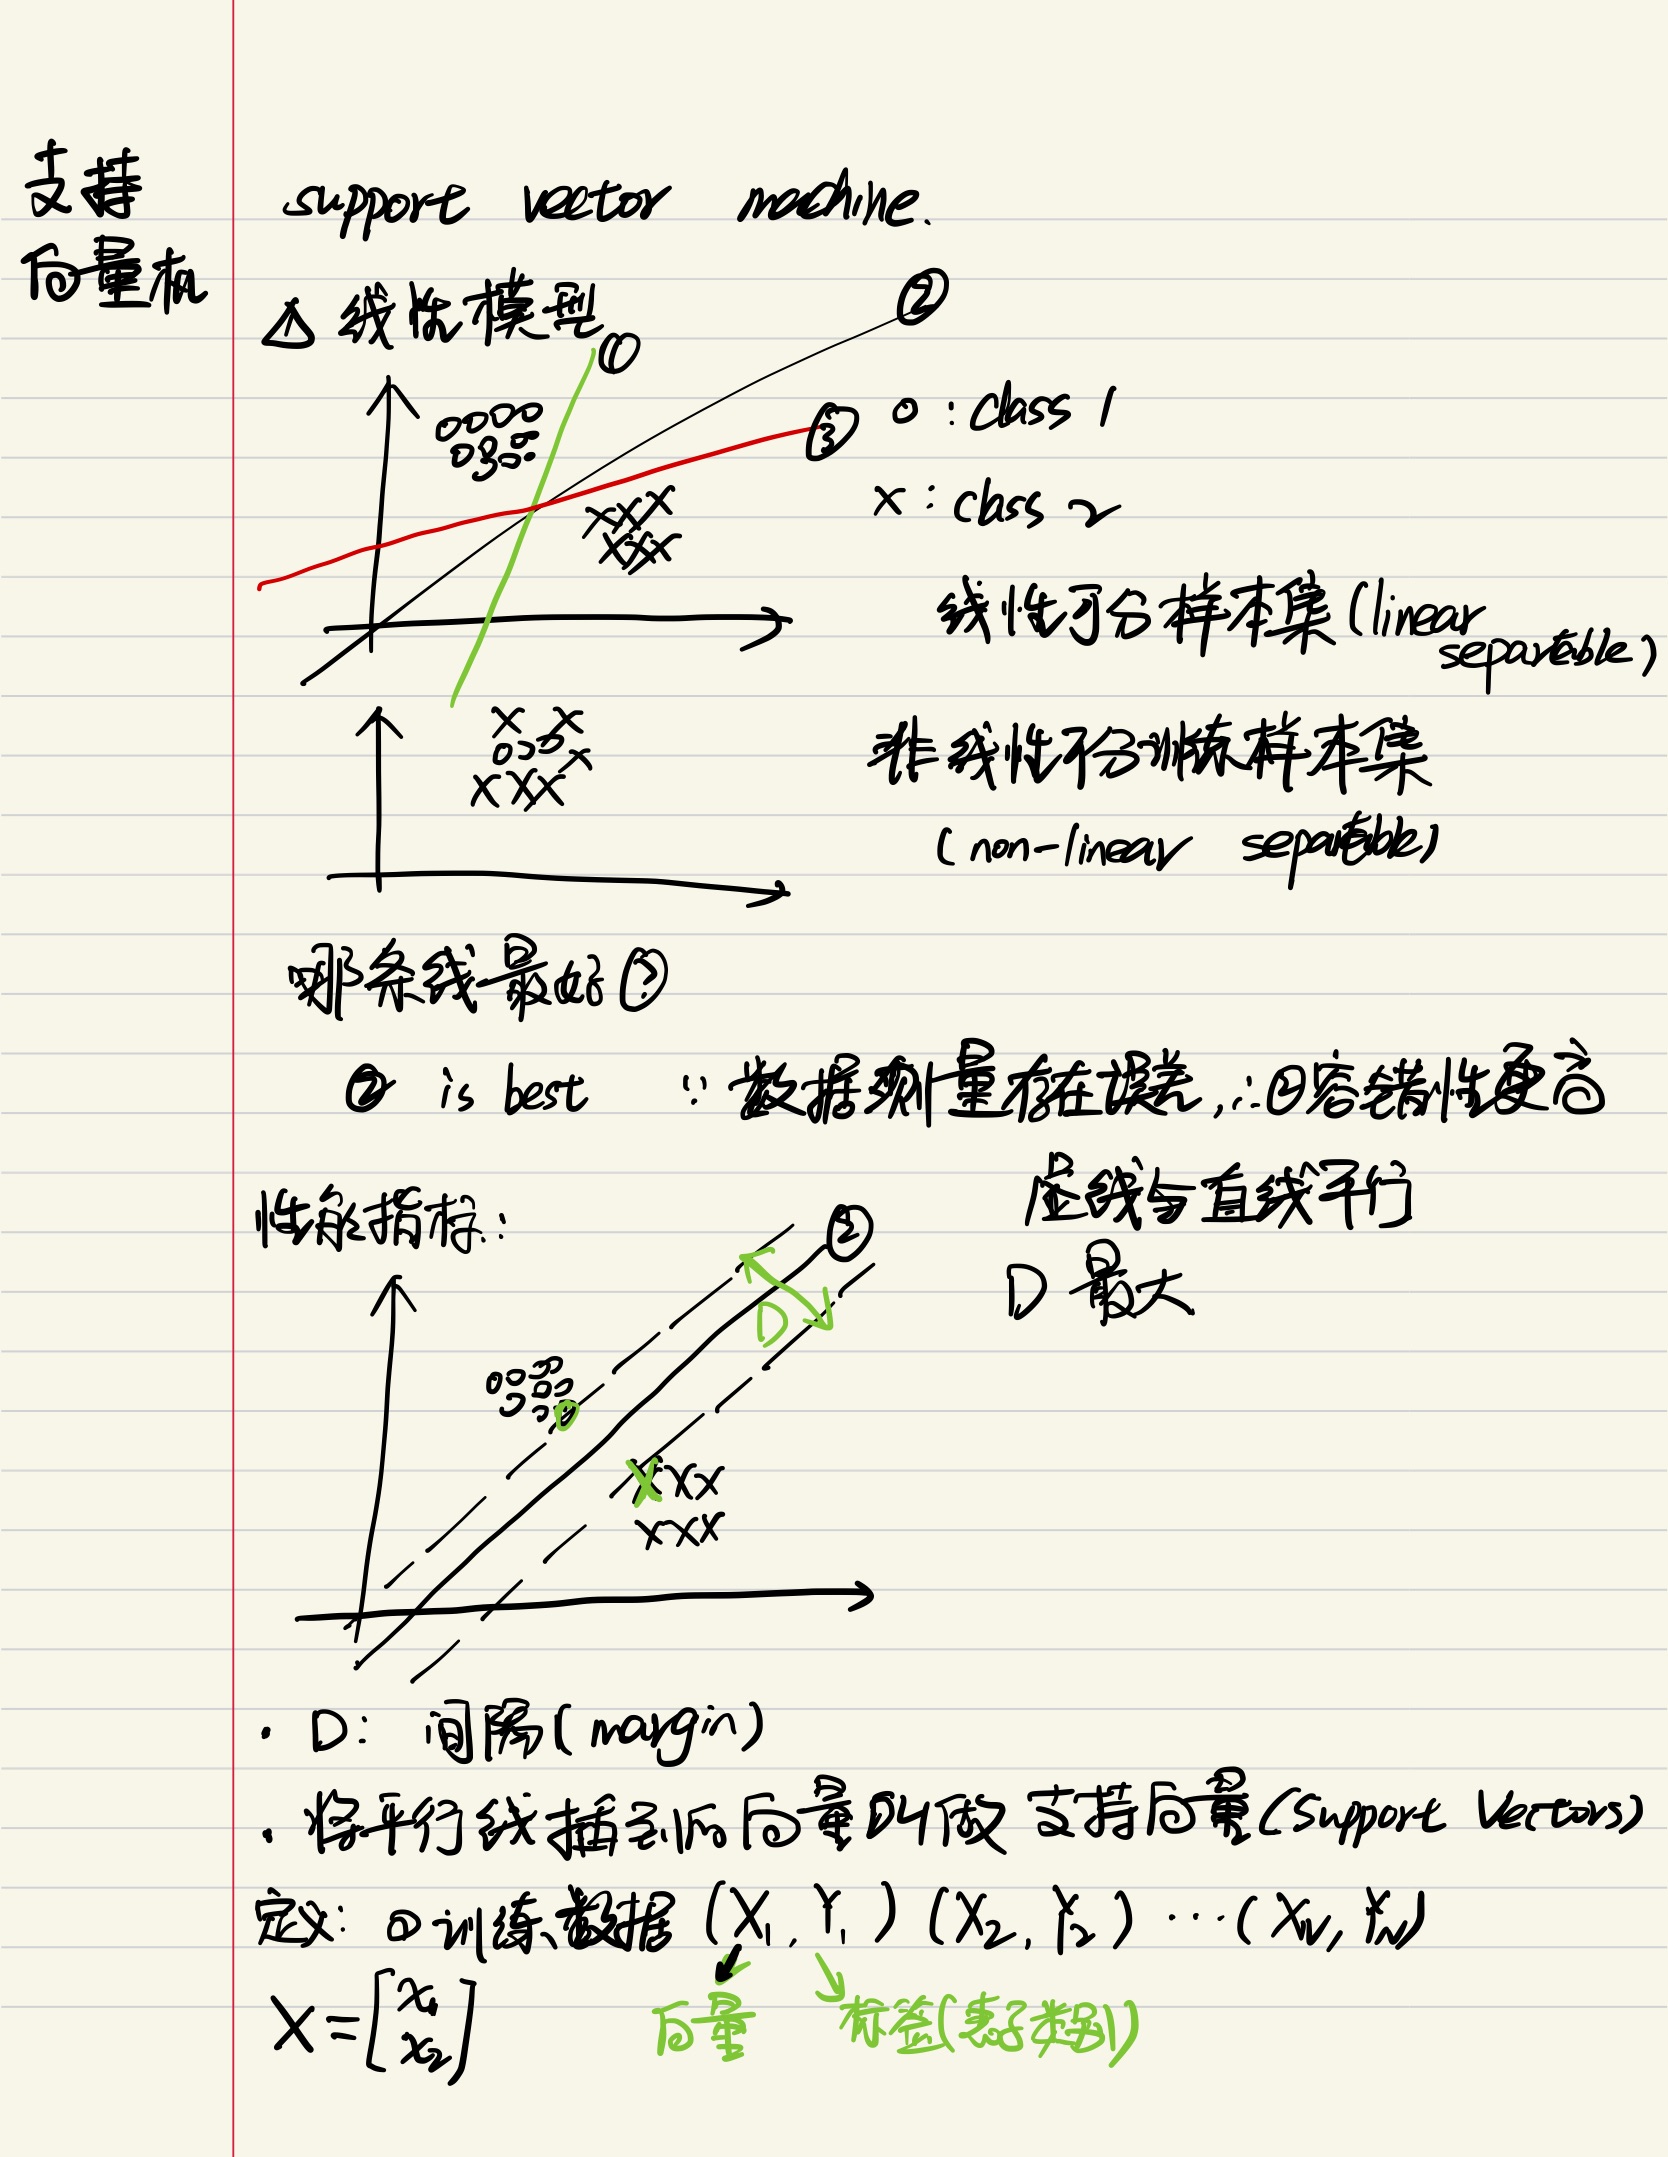 支持
向量机
support vector machine.
△ 线性模型
①
②
③
o : class 1
x : class 2
线性可分样本集 (linear
separable)
非线性可分训练样本集
(non-linear separable)
哪条线最好?
② is best ∵ 数据测量存在误差, ∴②容错性更高
虚线与直线平行
性能指标:
②
D 最大
D
· D: 间隔 (margin)
· 将平行线插到的向量叫做 支持向量 (Support Vectors)
定义: ①训练数据 (X₁, Y₁) (X₂, Y₂) ··· (X_N, Y_N)
X = [x₁
x₂]
向量 标签(表示类别)